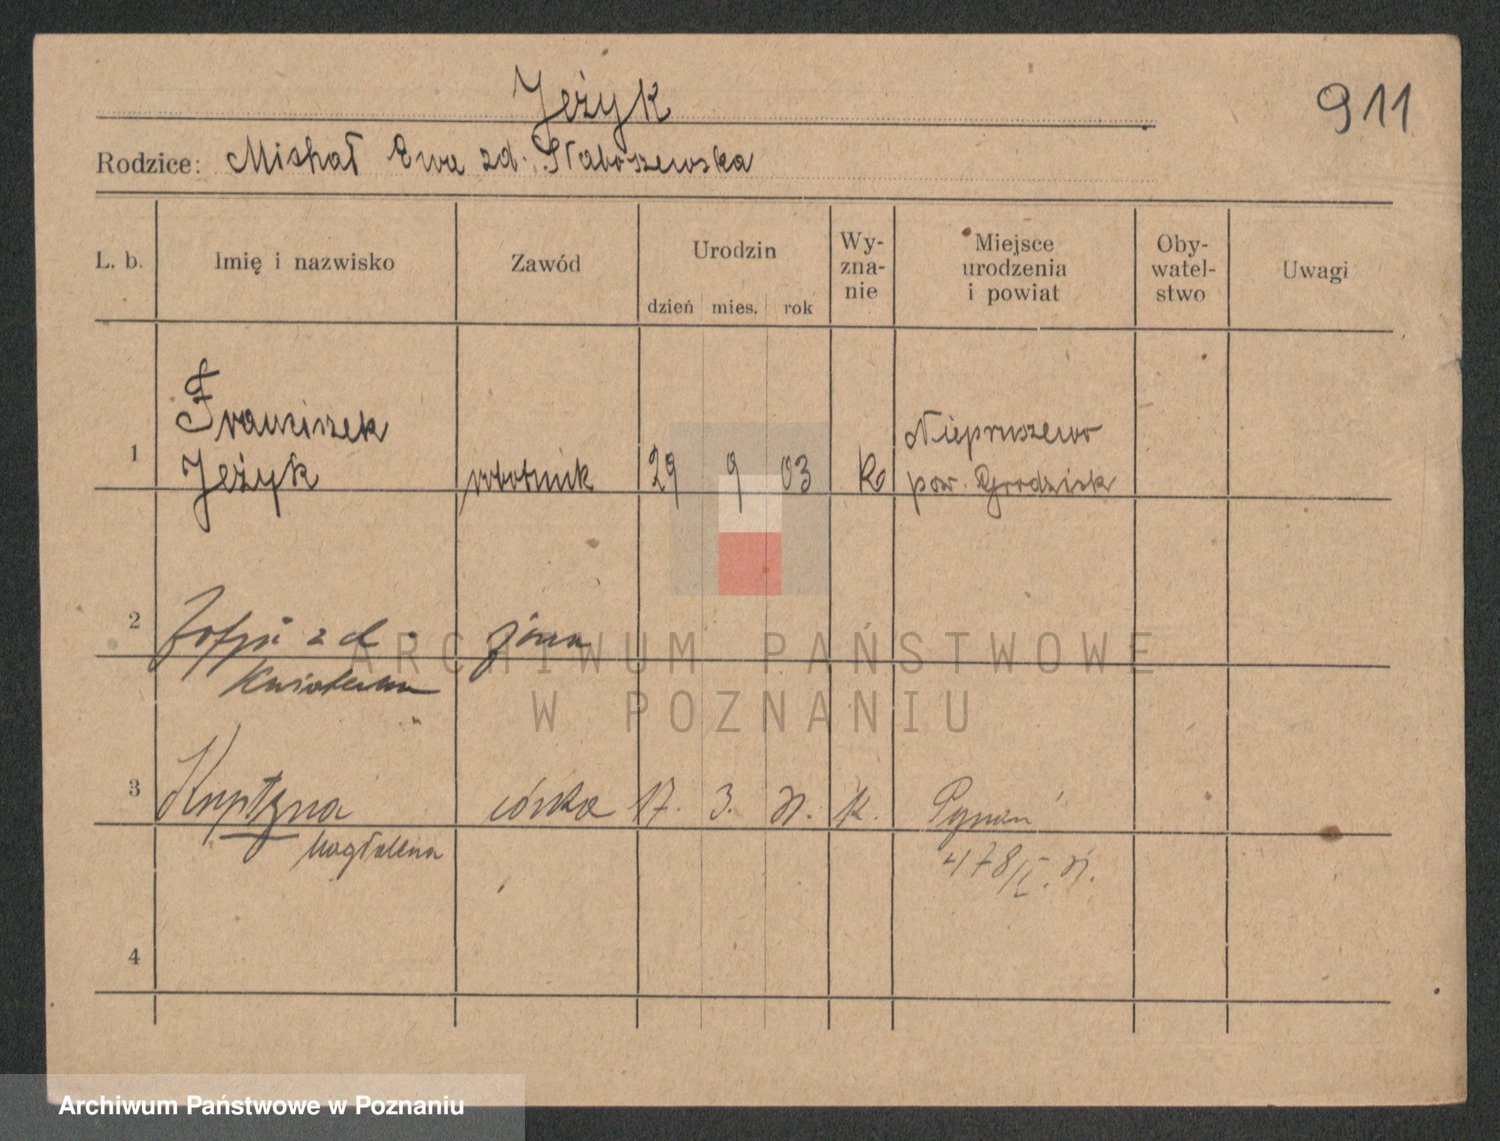 Jeżyk
911
Rodzice: Michał Ewa zd. Naboszewska
L. b.
Imię i nazwisko
Zawód
Urodzin
dzień mies. rok
Wy-
zna-
nie
Miejsce
urodzenia
i powiat
Oby-
watel-
stwo
Uwagi
1
Franciszek
Jeżyk
robotnik
29 9 03
k
Niepruszewo
pow. Grodzisk
2
Zofja zd.
żona
3
Krystyna
Magdalena
córka
17. 3. 31.
k.
Poznań
478/I. 31.
4
ARCHIWUM PAŃSTWOWE
W POZNANIU
Archiwum Państwowe w Poznaniu